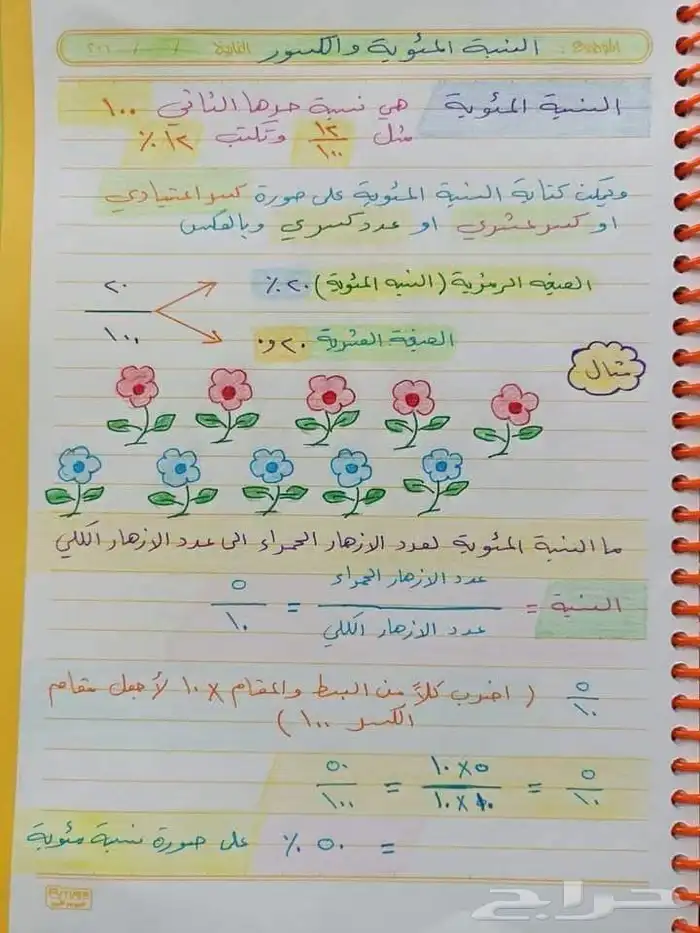 الموضوع : النسبة المئوية والكسور التاريخ / / ٢٠١
النسبة المئوية هي نسبة حدها الثاني ١٠٠
مثل ١٢/١٠٠ وتكتب ١٢ ٪
ويمكن كتابة النسبة المئوية على صورة كسر اعتيادي
او كسر عشري او عدد كسري وبالعكس
٢٠/١٠٠
الصيغه الرمزية (النسبه المئوية) ٢٠ ٪
الصيغة العشرية ٢٠و٠
مثال
ما النسبة المئوية لعدد الازهار الحمراء الى عدد الازهار الكلي
النسبة = عدد الازهار الحمراء / عدد الازهار الكلي = ٥/١٠
٥/١٠ ( اضرب كلاً من البسط والمقام × ١٠ لأجعل مقام
الكسر ١٠٠ )
٥/١٠ = ٥×١٠ / ١٠×١٠ = ٥٠/١٠٠
= ٥٠ ٪ على صورة نسبة مئوية
حراج